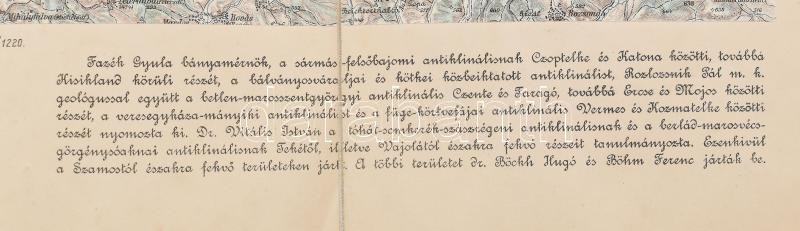 1220.
Fazék Gyula bányamérnök, a sármás-felsőbajomi antiklinálisnak Czoptelke és Katona közötti, továbbá
Kisikland körüli részét, a bálványosváraljai és kötkei közbeiktatott antiklinálist, Rozlozsnik Pál m. k.
geológussal együtt a betlen-marosszentgyörgyi antiklinális Czente és Farczgó, továbbá Ercse és Mojos közötti
részét, a veresegyháza-mányiki antiklinálist és a füge-körtvefájai antiklinális Vermes és Kozmatelke közötti
részét nyomozta ki. Dr. Vitális István a kóhát-senkerék-szászrégeni antiklinálisnak és a berlád-marosvécs-
görgénysóaknai antiklinálisnak Tekétől, illetve Vajolától északra fekvő részeit tanulmányozta. Ezenkivül
a Szamostól északra fekvő területeken járt. A többi területet dr. Böckh Hugó és Böhm Ferenc járták be.